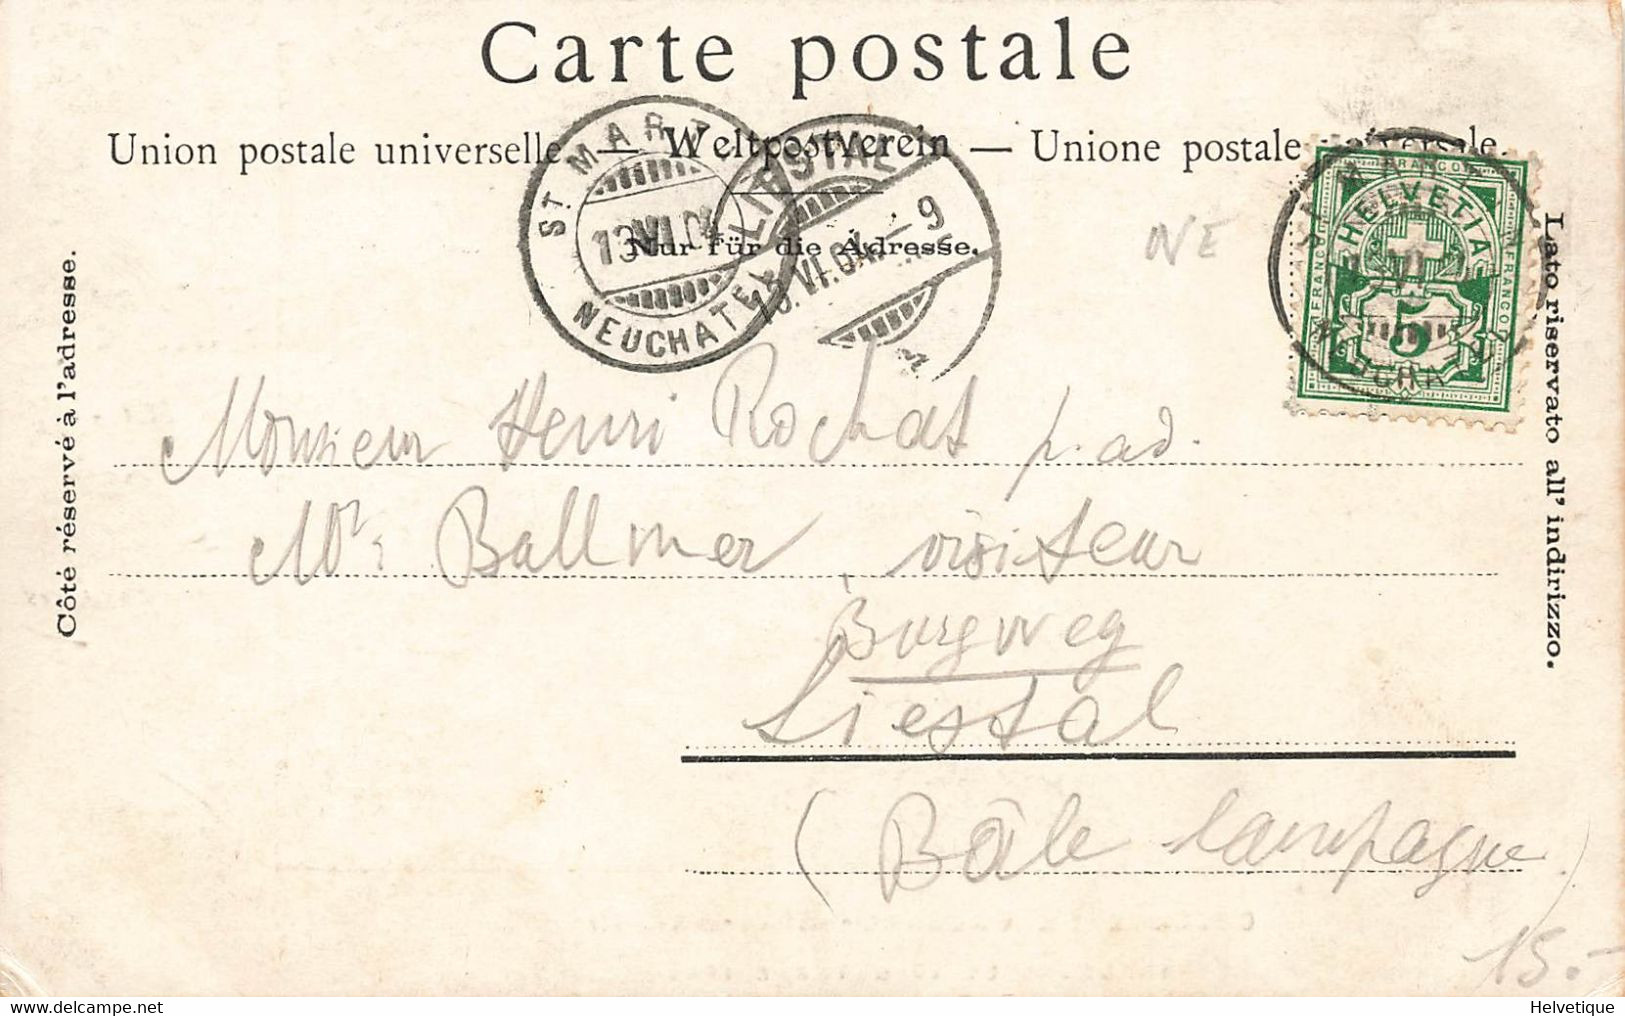 Carte postale
Union postale universelle — Weltpostverein — Unione postale universale.
Nur für die Adresse.
Côté réservé à l'adresse.
Lato riservato all' indirizzo.
ST MART
13.VI.04
NEUCHATEL
LIESTAL
13.VI.04.–9
NE
FRANCO
HELVETIA
FRANCO
FRANCO
5
Monsieur Henri Rochat p. ad.
Mr. Ballmer, visiteur
Burgweg
Liestal
(Bâle campagne)
15.-
delcampe.net
Helvetique